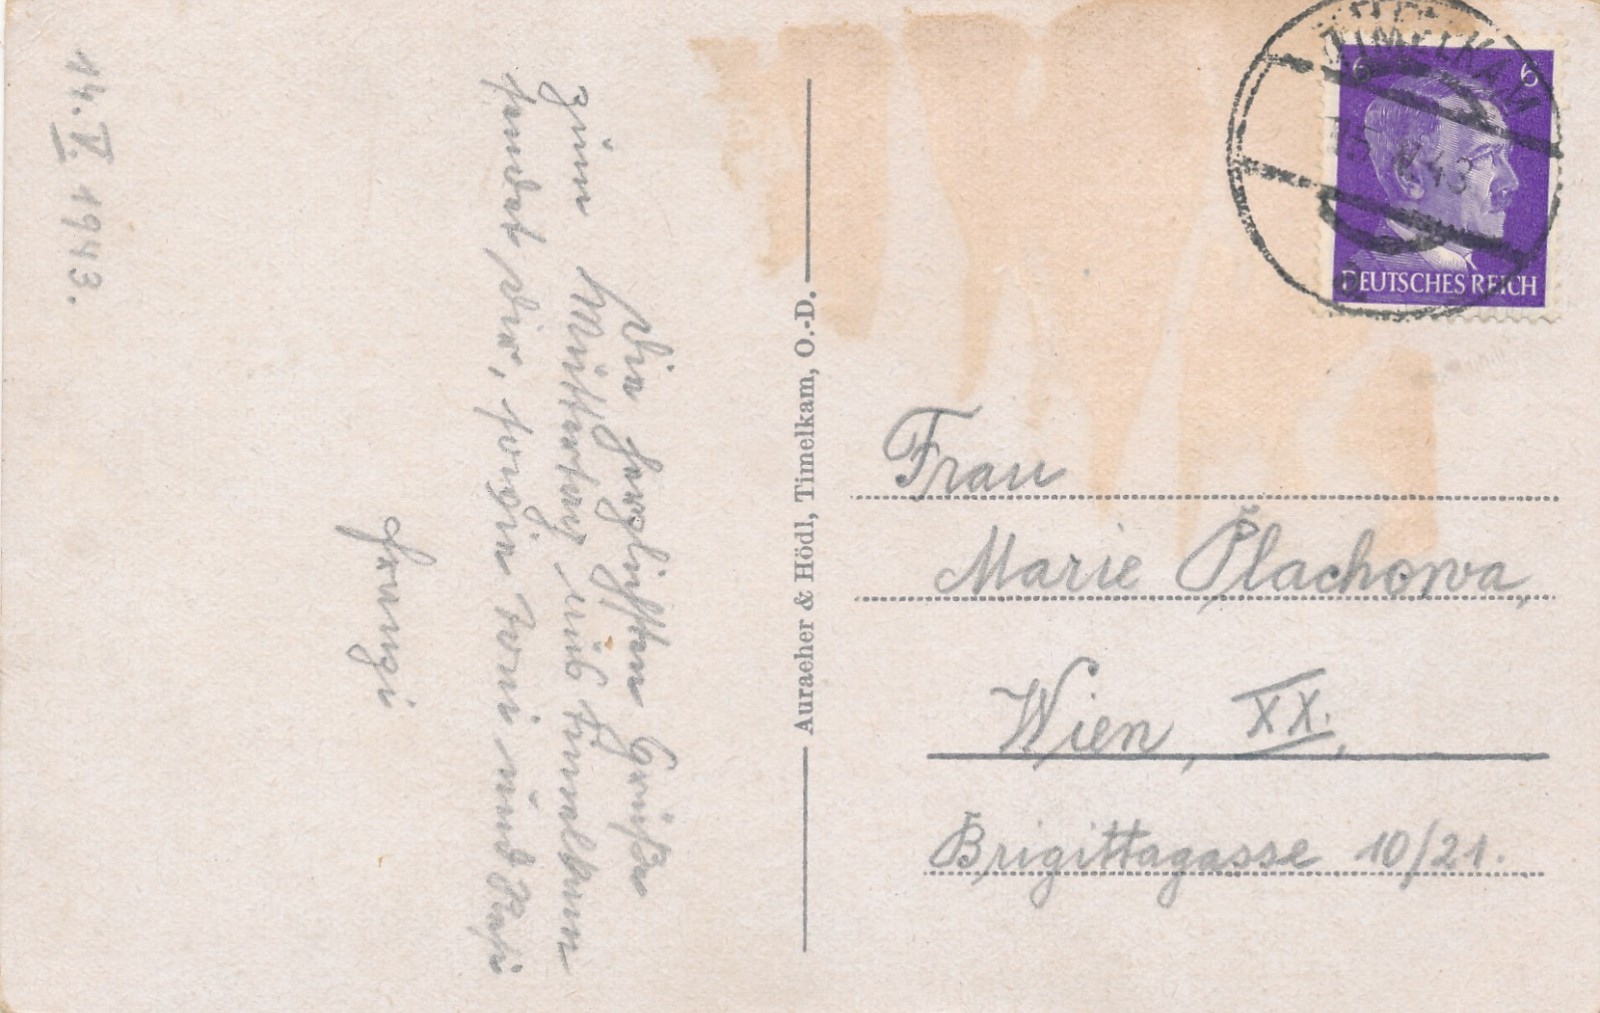 14. V. 1943.
Die herzlichsten Grüße
zum Muttertag aus Timelkam
sendet Dir, sowie Toni und
Franzi
Auracher & Hödl, Timelkam, O.-D.
TIMELKAM
15. V. 43
6 6
DEUTSCHES REICH
Frau
Marie Plachowa,
Wien, XX.,
Brigittagasse 10/21.